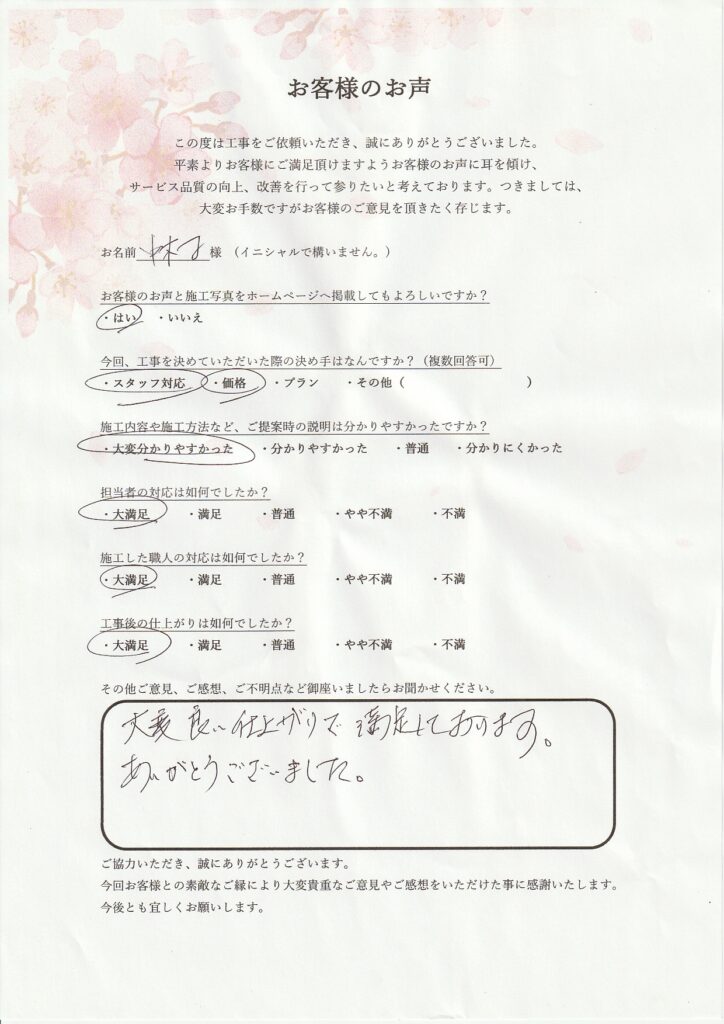 お客様のお声
この度は工事をご依頼いただき、誠にありがとうございました。
平素よりお客様にご満足頂けますようお客様のお声に耳を傾け、
サービス品質の向上、改善を行って参りたいと考えております。つきましては、
大変お手数ですがお客様のご意見を頂きたく存じます。
お名前 様 （イニシャルで構いません。）
お客様のお声と施工写真をホームページへ掲載してもよろしいですか？
・はい ・いいえ
今回、工事を決めていただいた際の決め手はなんですか？（複数回答可）
・スタッフ対応 ・価格 ・プラン ・その他（ ）
施工内容や施工方法など、ご提案時の説明は分かりやすかったですか？
・大変分かりやすかった ・分かりやすかった ・普通 ・分かりにくかった
担当者の対応は如何でしたか？
・大満足 ・満足 ・普通 ・やや不満 ・不満
施工した職人の対応は如何でしたか？
・大満足 ・満足 ・普通 ・やや不満 ・不満
工事後の仕上がりは如何でしたか？
・大満足 ・満足 ・普通 ・やや不満 ・不満
その他ご意見、ご感想、ご不明点など御座いましたらお聞かせください。
大変良い仕上がりで満足しております。
ありがとうございました。
ご協力いただき、誠にありがとうございます。
今回お客様との素敵なご縁により大変貴重なご意見やご感想をいただけた事に感謝いたします。
今後とも宜しくお願いします。